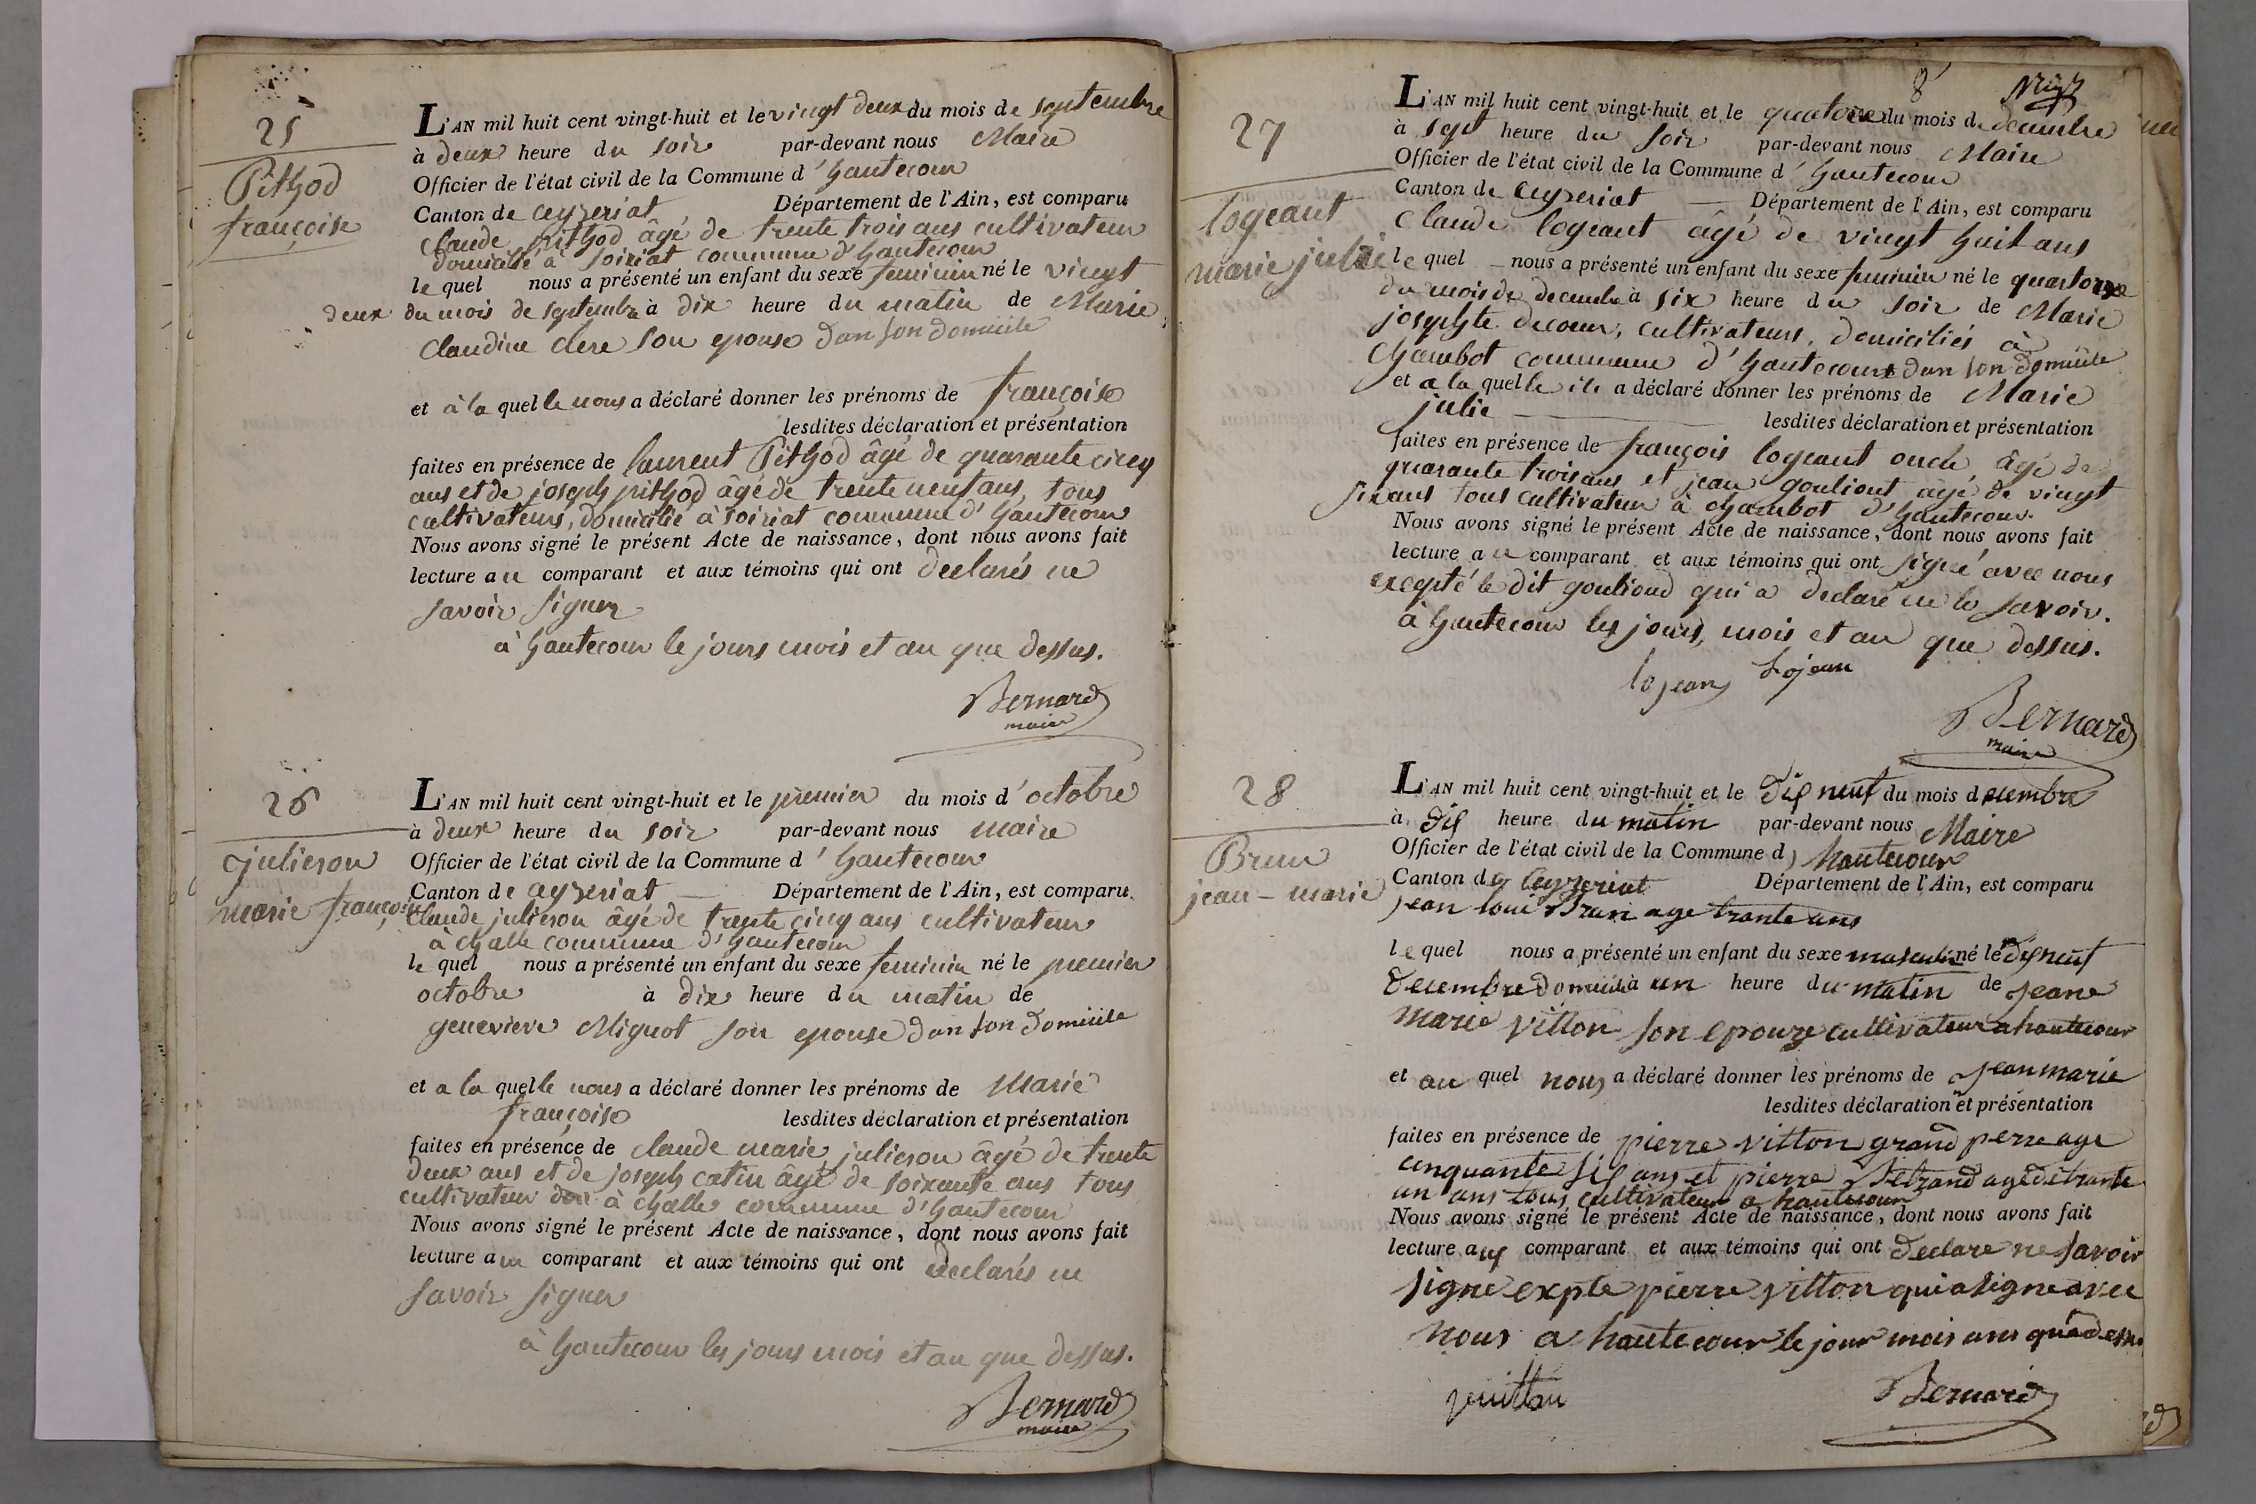 25
Pithod
françoise
L'AN mil huit cent vingt-huit et le vingt deux du mois de septembre
à deux heure du soir par-devant nous Maire
Officier de l'état civil de la Commune d'hautecour
Canton de ceyzeriat Département de l'Ain, est comparu
Claude pithod âgé de trente trois ans cultivateur
domicilié à soiriat commune d'hautecour
le quel nous a présenté un enfant du sexe feminin né le vingt
deux du mois de septembre à dix heure du matin de Marie
Claudine clere son epouse dan son domicile
et à la quelle nous a déclaré donner les prénoms de françoise
lesdites déclaration et présentation
faites en présence de laurent Pithod âgé de quarante cinq
ans et de joseph pithod âgé de trente neuf ans, tous
cultivateurs, domicilié à soiriat commune d'hautecour
Nous avons signé le présent Acte de naissance, dont nous avons fait
lecture au comparant et aux témoins qui ont declarés ne
savoir signer
à hautecour le jours mois et an que dessus.
Bernard
maire
26
julieron
marie françoise
L'AN mil huit cent vingt-huit et le premier du mois d'octobre
à deux heure du soir par-devant nous maire
Officier de l'état civil de la Commune d'hautecour
Canton de ceyzeriat Département de l'Ain, est comparu
Claude julieron âgé de trente cinq ans cultivateur
à challe commune d'hautecour
le quel nous a présenté un enfant du sexe feminin né le premier
octobre à dix heure du matin de
genevieve Miguot son epouse dan son domicile
et a la quelle nous a déclaré donner les prénoms de Marie
françoise lesdites déclaration et présentation
faites en présence de claude marie julieron âgé de trente
deux ans et de joseph catin âgé de soixante ans tous
cultivateur à challe commune d'hautecour
Nous avons signé le présent Acte de naissance, dont nous avons fait
lecture au comparant et aux témoins qui ont declarés ne
savoir signer
à hautecour les jours mois et an que dessus.
Bernard
maire
8
27
logeant
marie julie
L'AN mil huit cent vingt-huit et le quatorze du mois de decembre
à sept heure du soir par-devant nous Maire
Officier de l'état civil de la Commune d'hautecour
Canton de ceyzeriat Département de l'Ain, est comparu
Claude logeant âgé de vingt huit ans
le quel nous a présenté un enfant du sexe feminin né le quartorze
du mois de decembre à six heure du soir de Marie
josephte decour, cultivateurs, domiciliés à
Chambot commune d'hautecour dan son domicile
et a la quelle il a déclaré donner les prénoms de Marie
julie lesdites déclaration et présentation
faites en présence de françois logeant oncle, âgé de
quarante trois ans et jean gouliout âgé de vingt
six ans tous cultivateur à chambot d'hautecour.
Nous avons signé le présent Acte de naissance, dont nous avons fait
lecture au comparant et aux témoins qui ont signé avec nous
excepté le dit gouliond qui a declaré ne le savoir.
à hautecour les jours, mois et an que dessus.
lojean Lojean
Bernard
maire
28
Brun
jean-marie
L'AN mil huit cent vingt-huit et le dix neuf du mois decembre
à dix heure du matin par-devant nous Maire
Officier de l'état civil de la Commune d'hautecour
Canton de Ceyzeriat Département de l'Ain, est comparu
jean loui Brun age trante ans
le quel nous a présenté un enfant du sexe masculin né le dix neuf
decembre domicile à un heure du matin de jeane
marie vitton son epouze cultivateur a hautecour
et au quel nous a déclaré donner les prénoms de jean marie
lesdites déclaration et présentation
faites en présence de pierre vitton grand perre age
cinquante six ans et pierre Betrand age de trante
un ans tous cultivateur a hautecour
Nous avons signé le présent Acte de naissance, dont nous avons fait
lecture aux comparant et aux témoins qui ont declare ne savoir
signe expte pierre vitton qui a signe avec
nous a hautecour le jour mois ans que desus
pvitton
Bernard